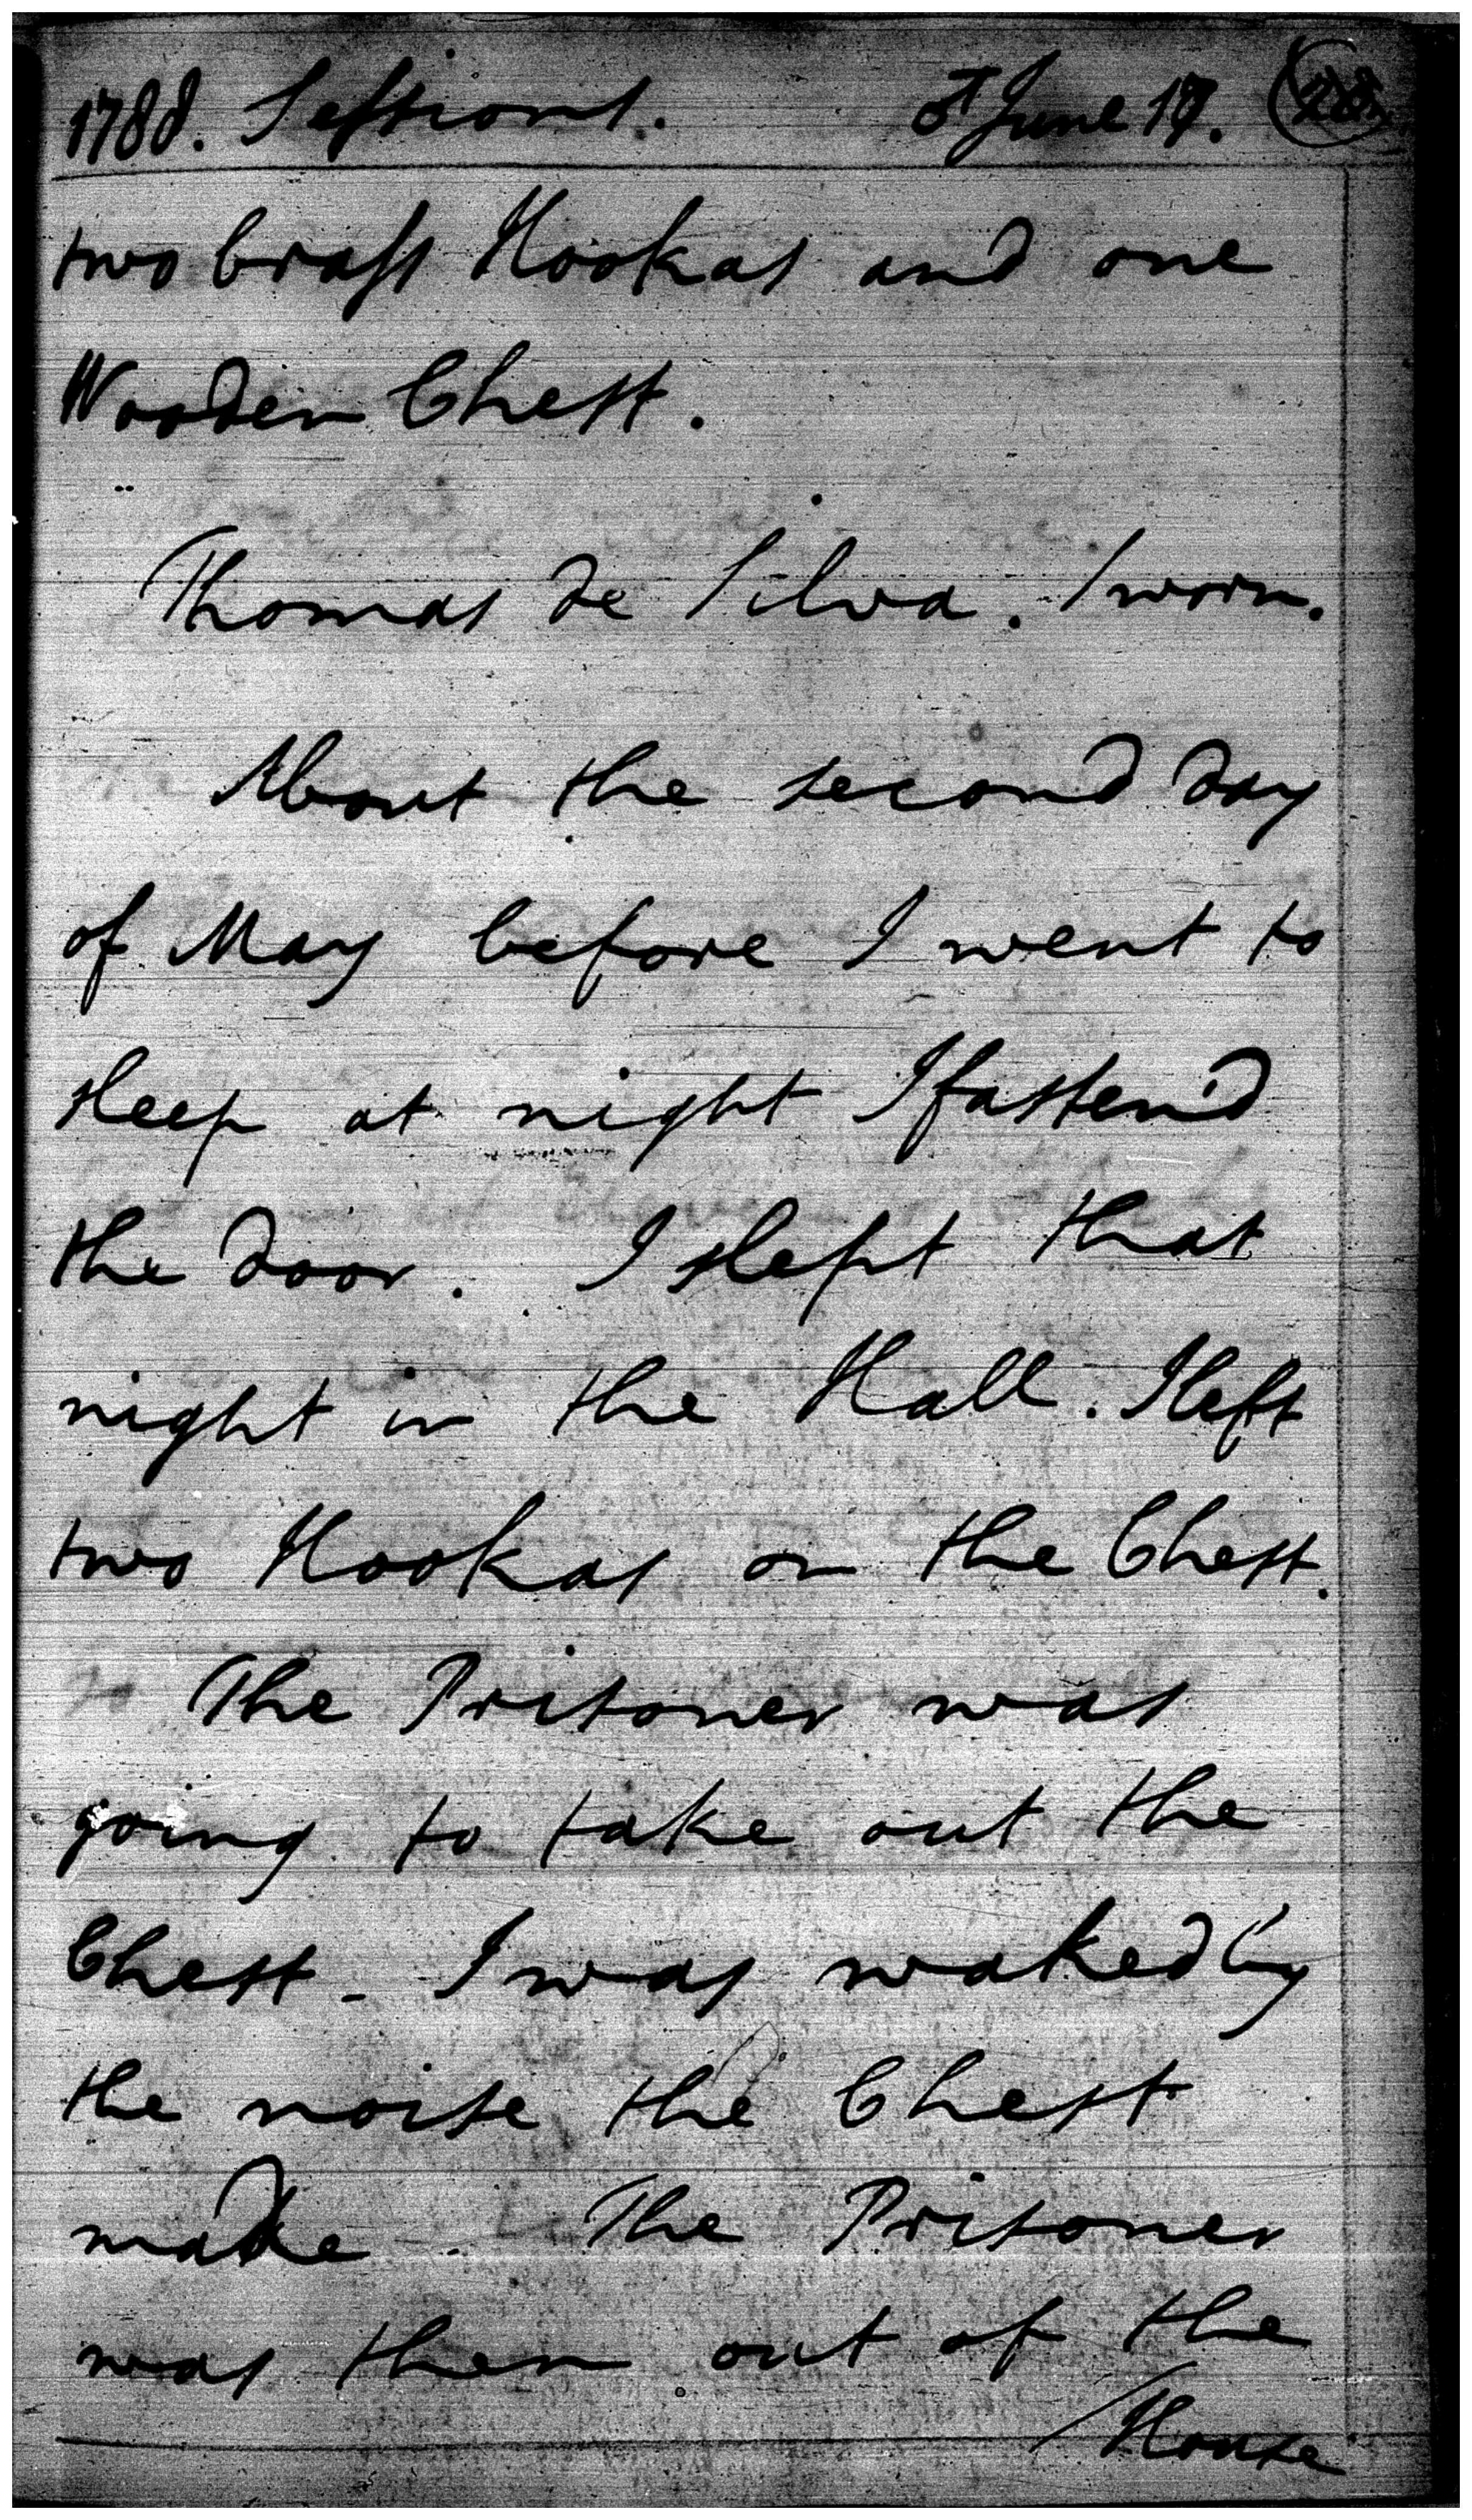 1788. Sessions. June 17.
two brass Hookas and one
Wooden Chest.
Thomas de Silva. Sworn.
About the second day
of May before I went to
sleep at night I fasten'd
the door. I slept that
night in the Hall. I left
two Hookas on the Chest.
The Prisoner was
going to take out the
Chest - I was waked by
the noise the Chest
made. The Prisoner
was then out of the
House